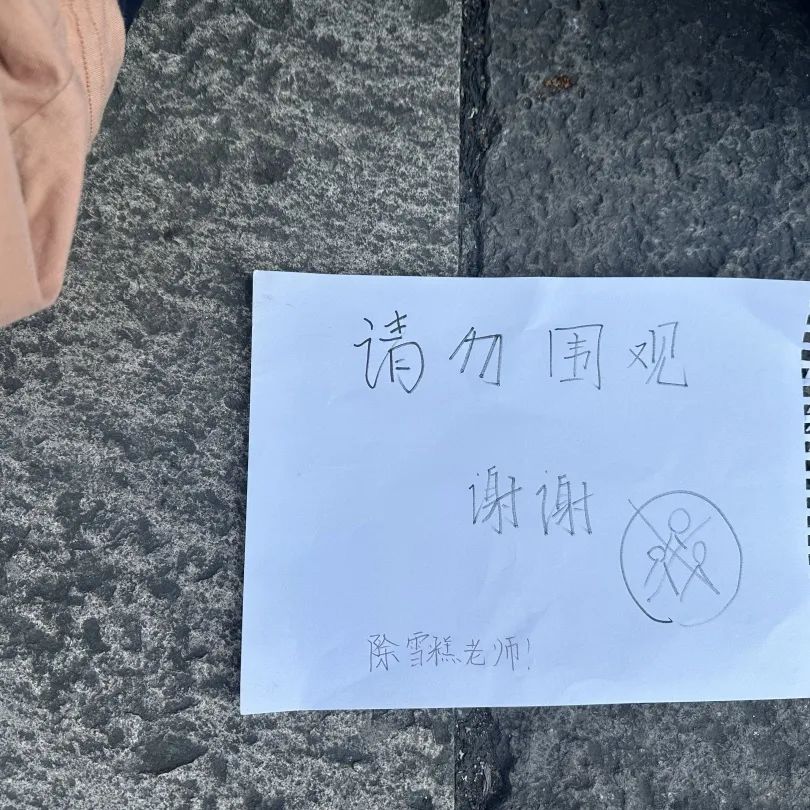 请勿围观
谢谢
除雪糕老师!